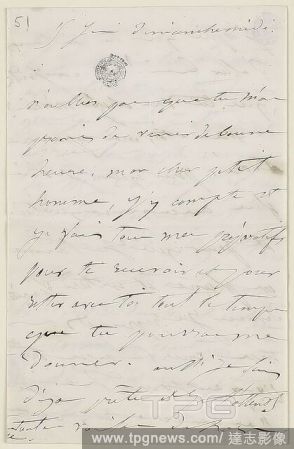 51
5 Jn dimanche midi.
n'oublies pas que tu m'as
promis de venir de bonne
heure, mon cher petit
homme, j'y compte et
je fais tous mes préparatifs
pour te recevoir et pour
rester avec toi tout le temps
que tu pourras me
donner. aussi je suis
déjà prête et
toute
TPG
www.tpgnews.com/達志影像